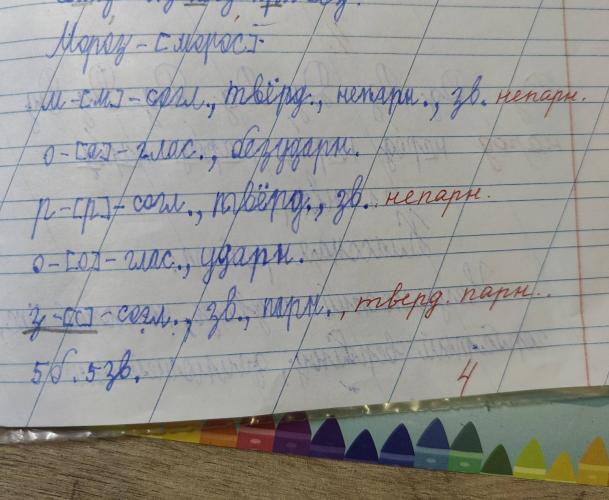 Мороз - [морос] -
м - [м] - согл., твёрд., непарн., зв. непарн.
о - [а] - глас., безударн.
р - [р] - согл., твёрд., зв. непарн.
о - [о] - глас., ударн.
з - [с] - согл., зв., парн., тверд. парн.
5 б. 5 зв.
4